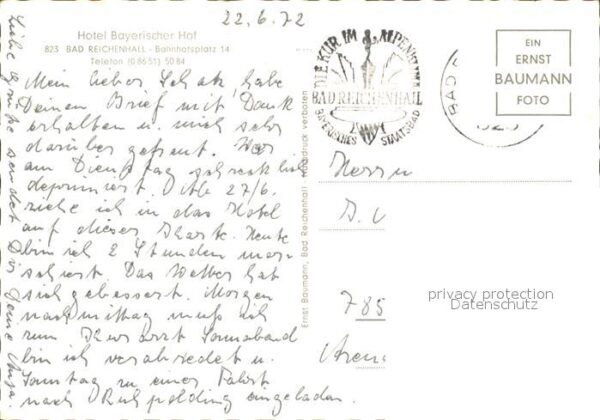 22.6.72
Hotel Bayerischer Hof
823 BAD REICHENHALL - Bahnhofsplatz 14
Telefon (08651) 5084
Mein lieber Schatz, habe
Deinen Brief mit Dank
erhalten u. mich sehr
darüber gefreut. War
am Dienstag schrecklich
deprimiert. Ab 27/6.
ziehe ich in das Hotel
auf dieser Karte. Heute
bin ich 2 Stunden mar-
schiert. Das Wetter hat
sich gebessert. Morgen
nachmittag muß ich
zum Kurarzt Sonnabend
bin ich verabredet u.
Sonntag zu einer Fahrt
nach Ruhpolding eingeladen.
Liebe Grüße sendet Dir Deine
Ernst Baumann, Bad Reichenhall Nachdruck verboten
DIE KUR IM ALPENKLIMA
BAD REICHENHALL
BAYERISCHES STAATSBAD
BAD
823
EIN
ERNST
BAUMANN
FOTO
Herrn
785
privacy protection
Datenschutz